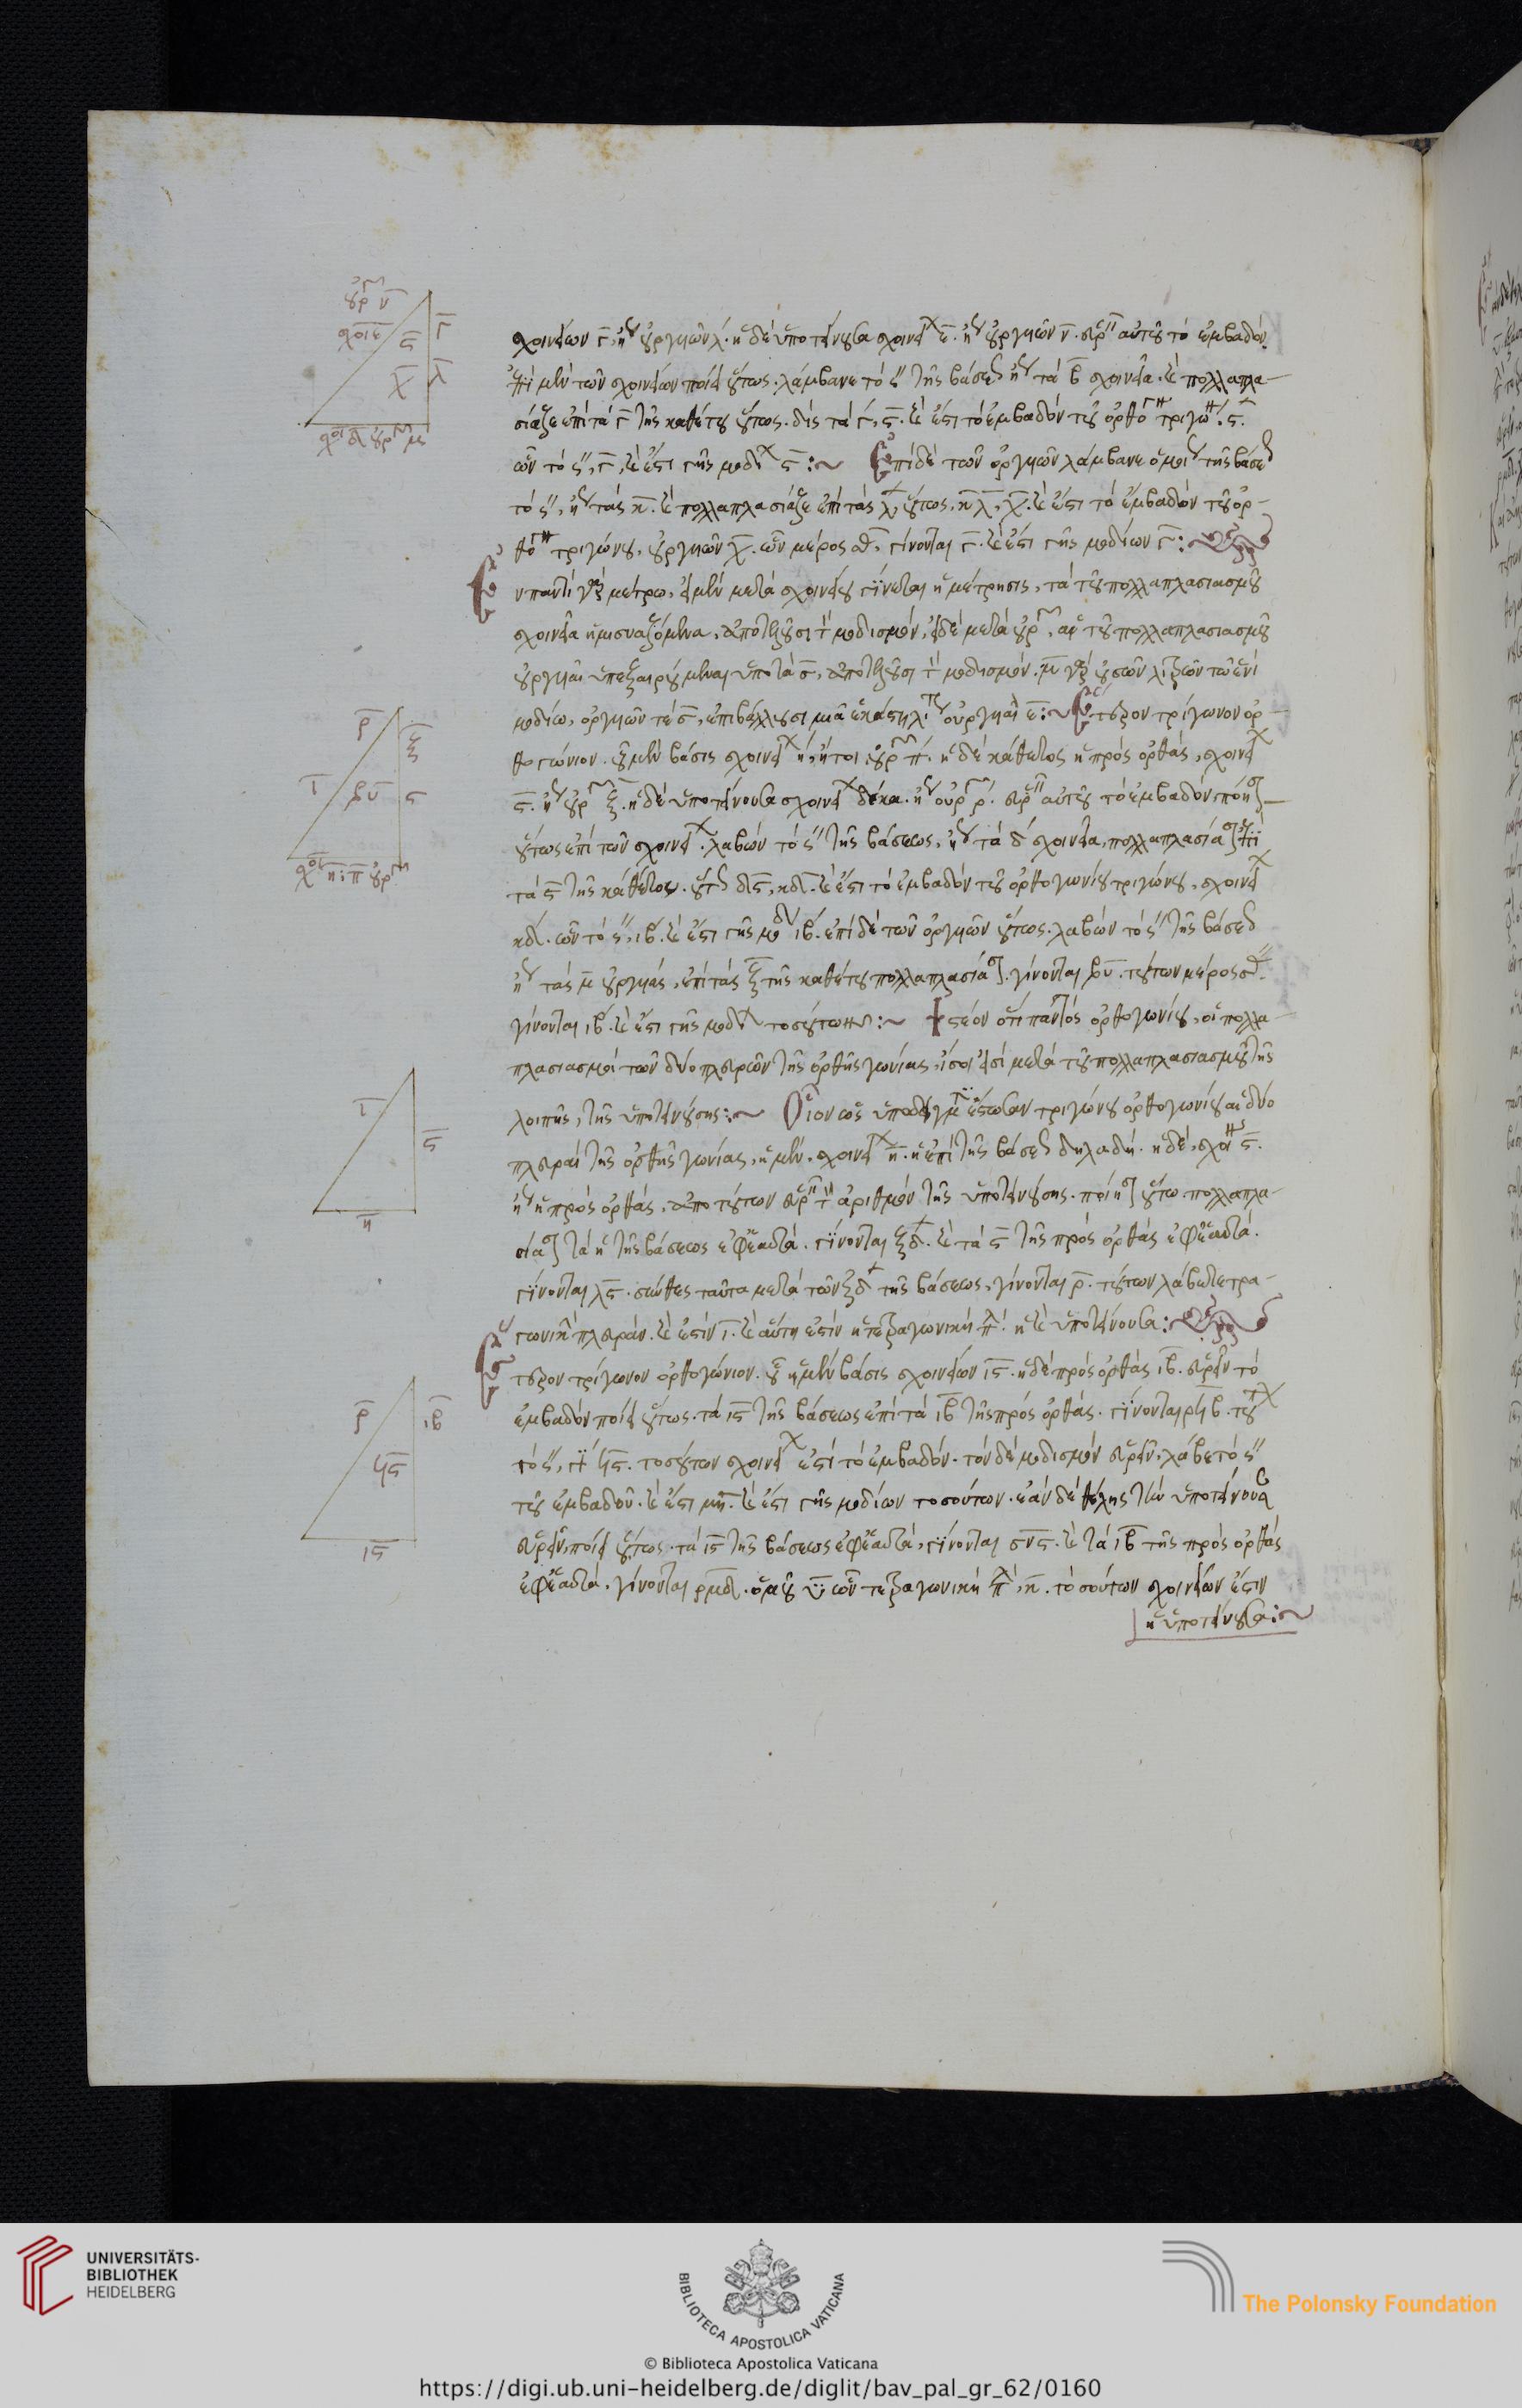 σχοινίων γ̅, ἤγουν ὀργυιῶν λ̅. ἡ δὲ ὑποτείνουσα σχοινίων ε̅. ἤγουν ὀργυιῶν ν̅. εὑρεῖν αὐτοῦ τὸ ἐμβαδόν.
ἐπὶ μὲν τῶν σχοινίων ποίει οὕτως. λάμβανε τὸ ς″ τῆς βάσεως ἤγουν τὰ β̅ σχοινία. καὶ πολλαπλα-
σίαζε ἐπὶ τὰ γ̅ τῆς καθέτου οὕτως. δὶς τὰ γ̅, ς̅. καὶ ἔστι τὸ ἐμβαδὸν τοῦ ὀρθογωνίου τριγώνου ς̅.
ὧν τὸ ς″, γ̅, καὶ ἔστι γῆς μοδίων :~ ἐπὶ δὲ τῶν ὀργυιῶν λάμβανε ὁμοίως τῆς βάσεως
τὸ ς″, ἤγουν τὰς κ̅. καὶ πολλαπλασίαζε ἐπὶ τὰς λ̅, οὕτως, κ̅ λ̅, χ̅. καὶ ἔστι τὸ ἐμβαδὸν τοῦ ὀρ-
θογωνίου τριγώνου, ὀργυιῶν χ̅. ὧν μέρος, γίνονται γ̅. καὶ ἔστι γῆς μοδίων γ̅:
ἐν παντὶ γὰρ μέτρω, εἰ μὲν μετὰ σχοινίου γίνεται ἡ μέτρησις, τὰ τοῦ πολλαπλασιασμοῦ
σχοινία ἡμισυαζόμενα, ἀποτελοῦσι τὸν μοδισμόν, εἰ δὲ μετὰ ὀργυιᾶς, αἱ τοῦ πολλαπλασιασμοῦ
ὀργυιαὶ ὑπεξαιρούμεναι ὑπὸ τὰ σ̅, ἀποτελοῦσι τὸν μοδισμόν. μ̅ γὰρ οὐσῶν λιτρῶν τῶ ἑνὶ
μοδίω, ὀργυιῶν τὲ σ̅, ἐπιβάλλουσι μιᾶ ἑκάστη λίτρα ὀργυιαὶ ε̅:~ ἕτερον τρίγωνον ὀρ-
θογώνιον. οὗ ἡ μὲν βάσις σχοινίων η̅, ἤτοι ὀργυιῶν π̅. ἡ δὲ κάθετος ἡ πρὸς ὀρθὰς, σχοινίων
ς̅. ἤγουν ὀργυιῶν ξ̅. ἡ δὲ ὑποτείνουσα σχοινίων δέκα. ἤγουν ὀργυιῶν ρ̅. εὑρεῖν αὐτοῦ τὸ ἐμβαδόν, ποίησον
οὕτως ἐπὶ τῶν σχοινίων. λαβὼν τὸ ς″ τῆς βάσεως, ἤγουν τὰ δ̅ σχοινία, πολλαπλασίασον ἐπὶ
τὰ ς̅ τῆς καθέτου. οὕτως δ ς̅, κδ. καὶ ἔστι τὸ ἐμβαδὸν τοῦ ὀρθογωνίου τριγώνου, σχοινίων
κδ. ὧν τὸ ς″, ιβ. καὶ ἔστι γῆς μοδίων ιβ. ἐπὶ δὲ τῶν ὀργυιῶν οὕτως. λαβὼν τὸ ς″ τῆς βάσεως
ἤγουν τὰς μ̅ ὀργυιάς, ἐπὶ τὰς ξ̅ τῆς καθέτου πολλαπλασίασον. γίνονται βυ̅. τούτων μέρος
γίνονται ιβ. καὶ ἔστι γῆς μοδίων τοσούτων:~ Ἰστέον ὅτι παντὸς ὀρθογωνίου, οἱ πολλα-
πλασιασμοὶ τῶν δύο πλευρῶν τῆς ὀρθῆς γωνίας, ἴσοι εἰσὶ μετὰ τοῦ πολλαπλασιασμοῦ τῆς
λοιπῆς, τῆς ὑποτεινούσης:~ Οἷον ὡς ὑποδείγματι ἔστωσαν τριγώνου ὀρθογωνίου αἱ δύο
πλευραὶ τῆς ὀρθῆς γωνίας, ἡ μὲν, σχοινίων η̅. ἡ ἐπὶ τῆς βάσεως δηλαδή. ἡ δὲ, σχοινίων ς̅.
ἤγουν ἡ πρὸς ὀρθάς, ἀπὸ τούτων εὑρεῖν τὸν ἀριθμὸν τῆς ὑποτεινούσης. ποίησον οὕτω. πολλαπλα-
σίασον τὰ η̅ τῆς βάσεως ἐφ' ἑαυτά. γίνονται ξδ. καὶ τὰ ς̅ τῆς πρὸς ὀρθὰς ἐφ' ἑαυτά.
γίνονται λς̅. σύνθες ταῦτα μετὰ τῶν ξδ τῆς βάσεως, γίνονται ρ̅. τούτων λάβε τετρα-
γωνικὴν πλευράν. καὶ ἔστιν ι̅. καὶ αὕτη ἐστὶν ἡ τετραγωνικὴ πλευρά. ἡ καὶ ὑποτείνουσα:
ἕτερον τρίγωνον ὀρθογώνιον. οὗ ἡ μὲν βάσις σχοινίων ις̅. ἡ δὲ πρὸς ὀρθὰς ιβ̅. εὑρεῖν τὸ
ἐμβαδὸν ποίει οὕτως. τὰ ις̅ τῆς βάσεως ἐπὶ τὰ ιβ̅ τῆς πρὸς ὀρθὰς. γίνονται ρϟβ̅. τούτων
τὸ ς″, γίνονται ϟς̅. τοσούτων σχοινίων ἐστὶ τὸ ἐμβαδόν. τὸν δὲ μοδισμὸν εὑρεῖν, λάβε τὸ ς″
τοῦ ἐμβαδοῦ. καὶ ἔστι μη̅. καὶ ἔστι γῆς μοδίων τοσούτων. ἐὰν δὲ θέλης τὴν ὑποτείνουσαν
εὑρεῖν, ποίει οὕτως. τὰ ις̅ τῆς βάσεως ἐφ' ἑαυτά, γίνονται σνς̅. καὶ τὰ ιβ̅ τῆς πρὸς ὀρθὰς
ἐφ' ἑαυτά. γίνονται ρμδ. ὁμοῦ υ̅ ὧν τετραγωνικὴ πλευρά, κ̅. τοσούτων σχοινίων ἐστὶν
ἡ ὑποτείνουσα:~
ὀργ ν̅
σχοι ε̅
ς̅
γ̅
χ̅
λ̅
σχοι δ ὀργ μ
ρ̅
ξ̅
ι̅
βυ̅
ς
σχοι η̅ : π̅ ὀργ
ι̅
ς̅
η̅
ρ̅
ιβ̅
ϟς̅
ις̅
UNIVERSITÄTS-
BIBLIOTHEK
HEIDELBERG
BIBLIOTECA APOSTOLICA VATICANA
The Polonsky Foundation
© Biblioteca Apostolica Vaticana
https://digi.ub.uni-heidelberg.de/diglit/bav_pal_gr_62/0160